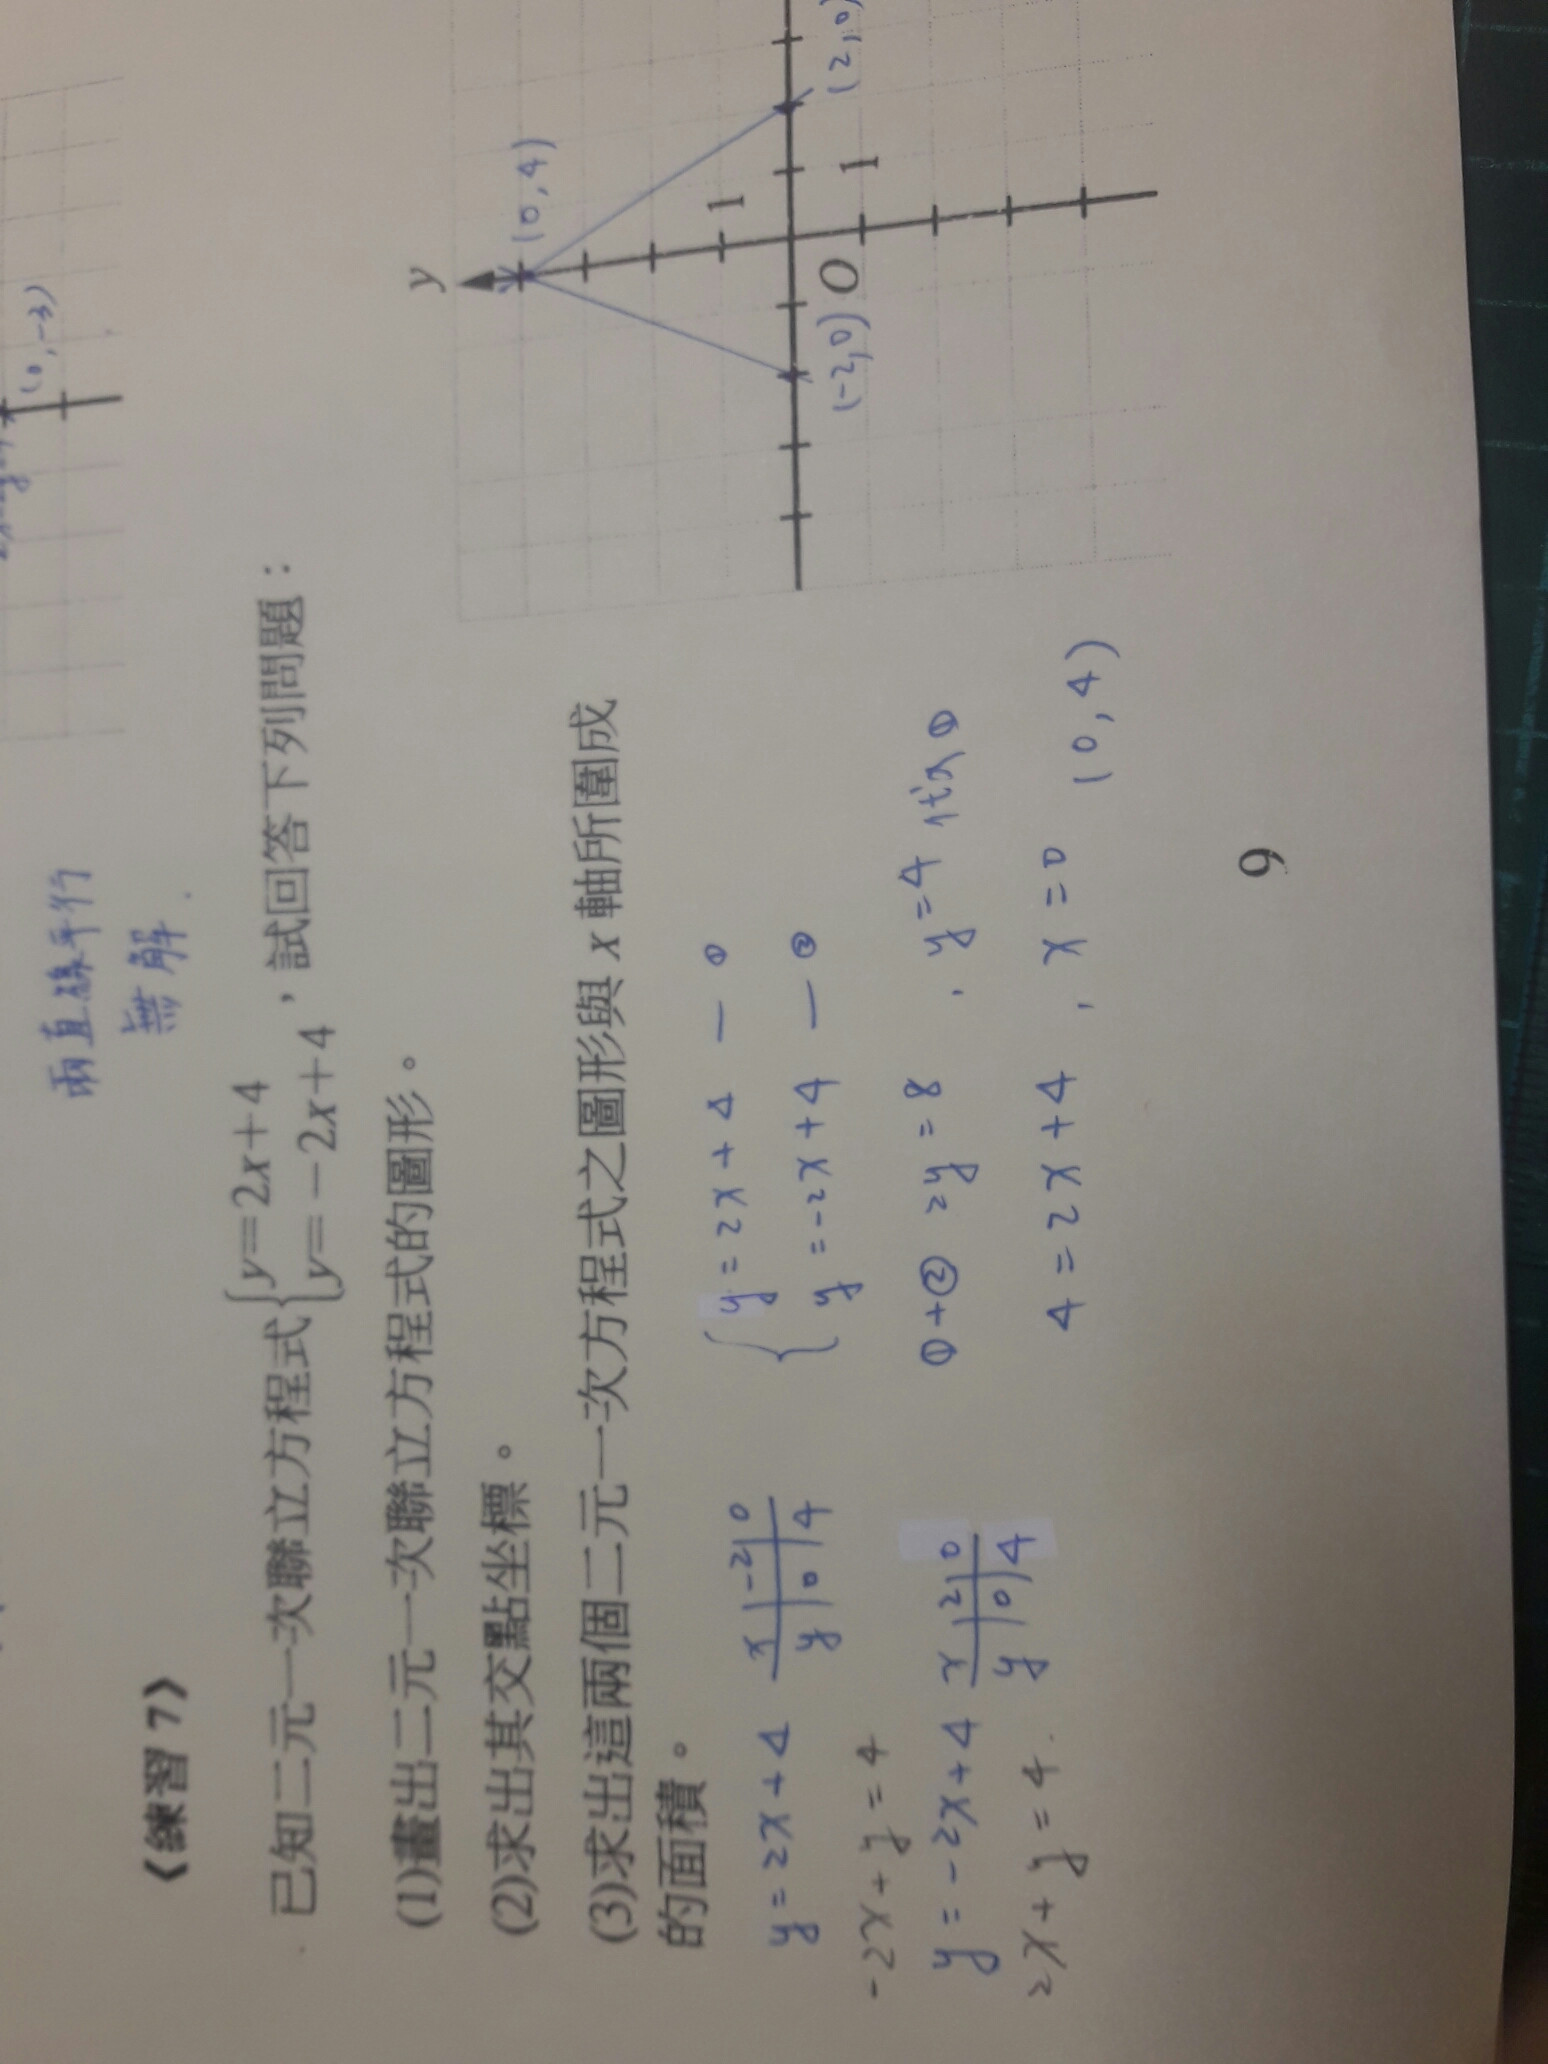 (0,-3)
兩直線平行
無解.
《練習7》
已知二元一次聯立方程式{y=2x+4
y=-2x+4，試回答下列問題：
(1)畫出二元一次聯立方程式的圖形。
(2)求出其交點坐標。
(3)求出這兩個二元一次方程式之圖形與 x 軸所圍成
的面積。
y
(0,4)
1
O
1
(-2,0)
(2,0)
y=2x+4
x|-2|0
y|0|4
-2x+y=4
y=-2x+4
x|2|0
y|0|4
2x+y=4.
{y=2x+4 — ①
y=-2x+4 — ②
①+② 2y=8 , y=4 代入①
4=2x+4 , x=0 (0,4)
9